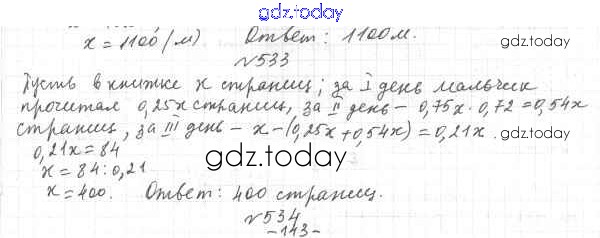 gdz.today
x=1100(м) Ответ: 1100м.
gdz.today
№533
Пусть в книжке x страниц; за I день мальчик
прочитал 0,25x страниц, за II день – 0,75x·0,72=0,54x
страниц, за III день – x–(0,25x+0,54x)=0,21x.
0,21x=84
gdz.today
x=84:0,21
x=400. Ответ: 400 страниц.
gdz.today
№534
-143-